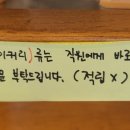 이커리) 류는 직원에게 바로
을 부탁드립니다. (적립 x)